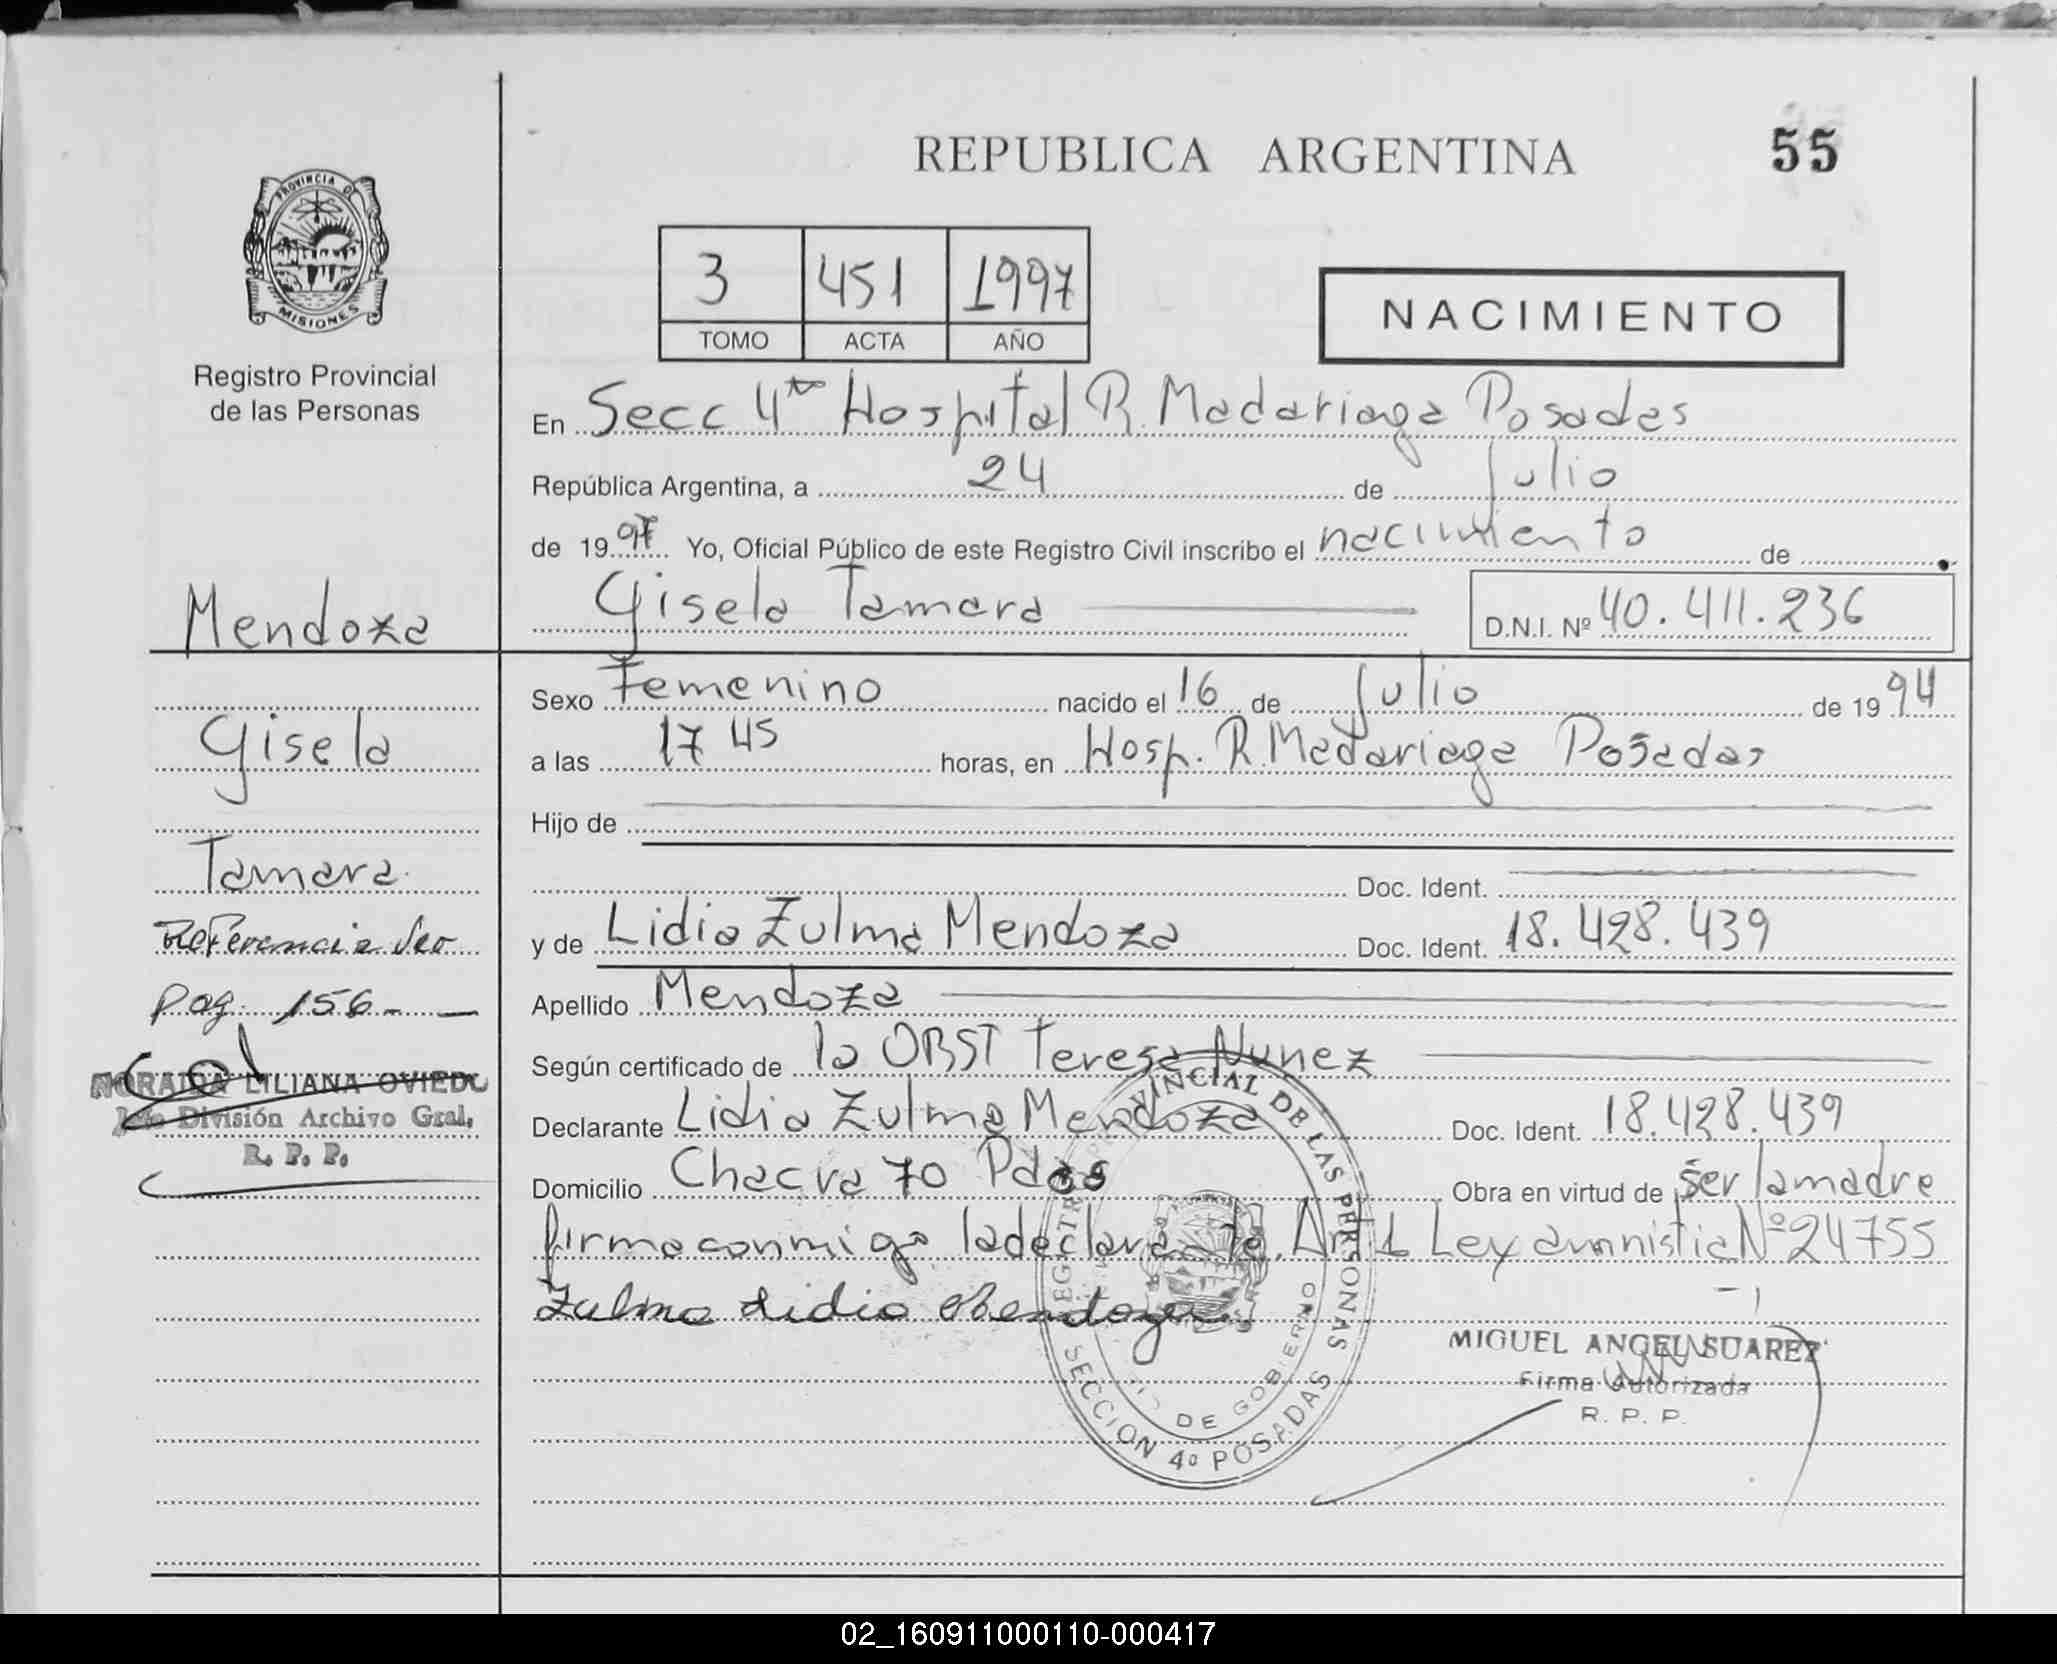 REPUBLICA ARGENTINA
55
PROVINCIA DE
MISIONES
Registro Provincial
de las Personas
3 451 1997
TOMO ACTA AÑO
NACIMIENTO
En Secc 4ta Hospital R. Madariaga Posadas
República Argentina, a 24 de Julio
de 1997 Yo, Oficial Público de este Registro Civil inscribo el nacimiento de
Gisela Tamara D.N.I. Nº 40.411.236
Mendoza
Sexo Femenino nacido el 16 de Julio de 1994
Gisela
a las 17 45 horas, en Hosp. R. Madariaga Posadas
Hijo de
Tamara
Doc. Ident.
Referencia
y de Lidia Zulma Mendoza Doc. Ident. 18.428.439
pag. 156
Apellido Mendoza
Según certificado de la OBST Teresa Nunez
NORAIDA LILIANA OVIEDO
División Archivo Gral.
R. P. P.
Declarante Lidia Zulma Mendoza Doc. Ident. 18.428.439
Domicilio Chacra 70 Pdas Obra en virtud de ser la madre
firma conmigo la declarante. Art 1 Ley amnistia Nº 24755
Zulma Lidia Mendoza
VINCIAL DE LAS PERSONAS
SECCION 4º POSADAS
DE GOBIERNO
MIGUEL ANGEL SUAREZ
Firma Autorizada
R. P. P.
02_160911000110-000417